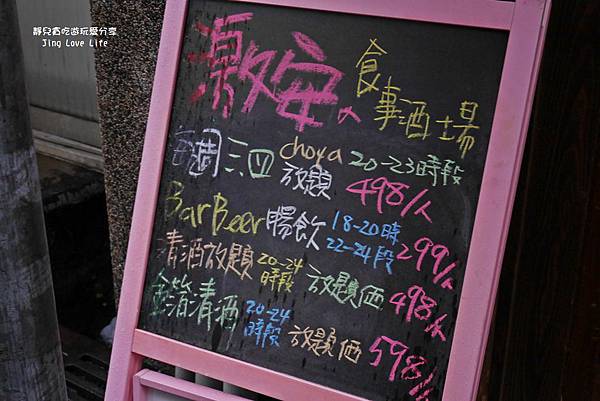 靜兒貪吃遊玩愛分享
Jing Love Life
激安の食事酒場
每週三四 choya 放題 20-23時段 498/人
BarBeer暢飲 18-20時 22-24段 299/人
清酒放題 20-24時段 放題価 498/人
金箔清酒 20-24時段 放題価 598/人